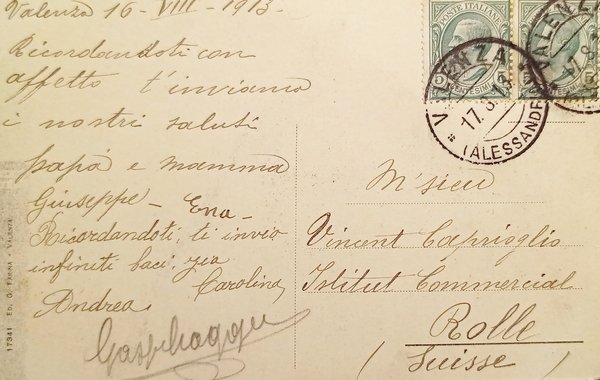 Valenza 16 - VIII - 1913.
Ricordandoti con
affetto t'inviamo
i nostri saluti
papà e mamma
Giuseppe - Ena -
Ricordandoti, ti invio
infiniti baci, zia
Carolina
Andrea
17341 Ed. G. FARINA - VALENZA
POSTE ITALIANE
CENTESIMI
VALENZA
17.8.13
(ALESSANDR
VALENZA
17.8
M'sieu
Vincent Caprioglio
Istitut Commercial
Rolle
(Suisse)